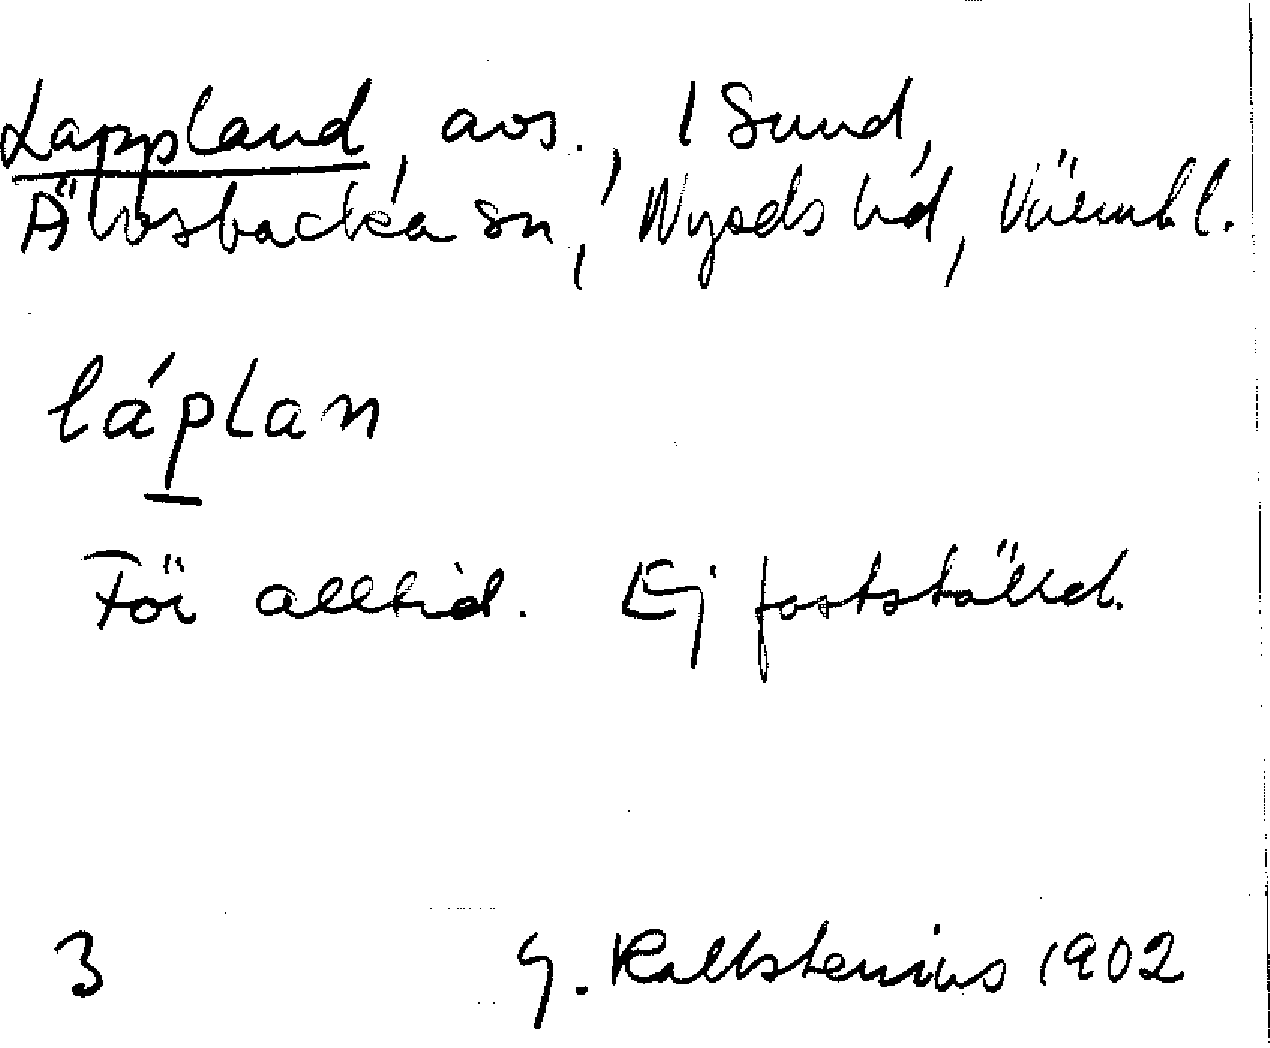 Lappland, avs., 1 Sund,
Älvsbacka sn, Nyeds hd, Värml.
láplan
För alltid. Ej fastställd.
3 G. Kallstenius 1902